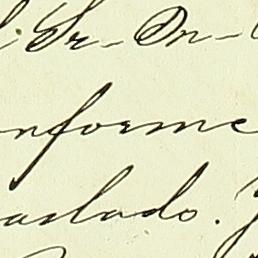 Sr. Dn.
nforme
aslado.